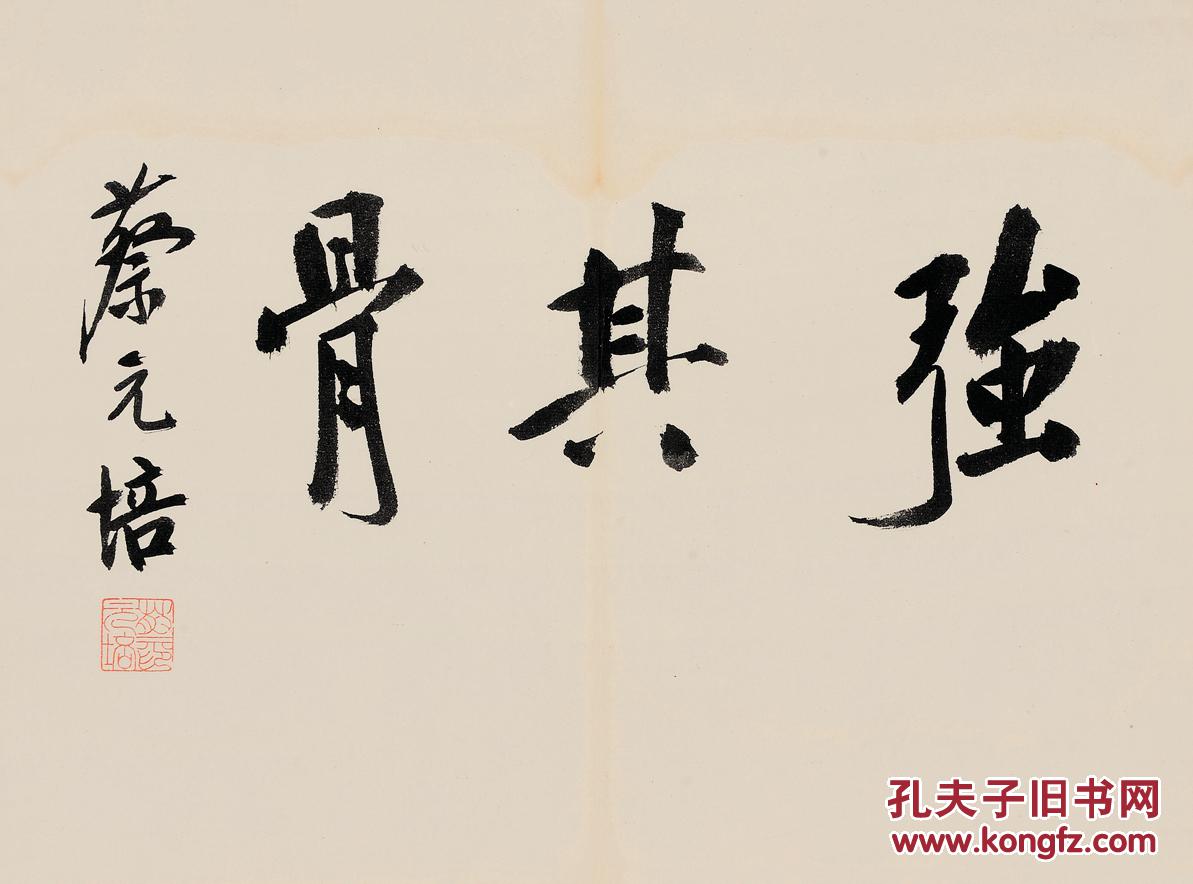 強其骨
蔡元培
孔夫子旧书网
www.kongfz.com